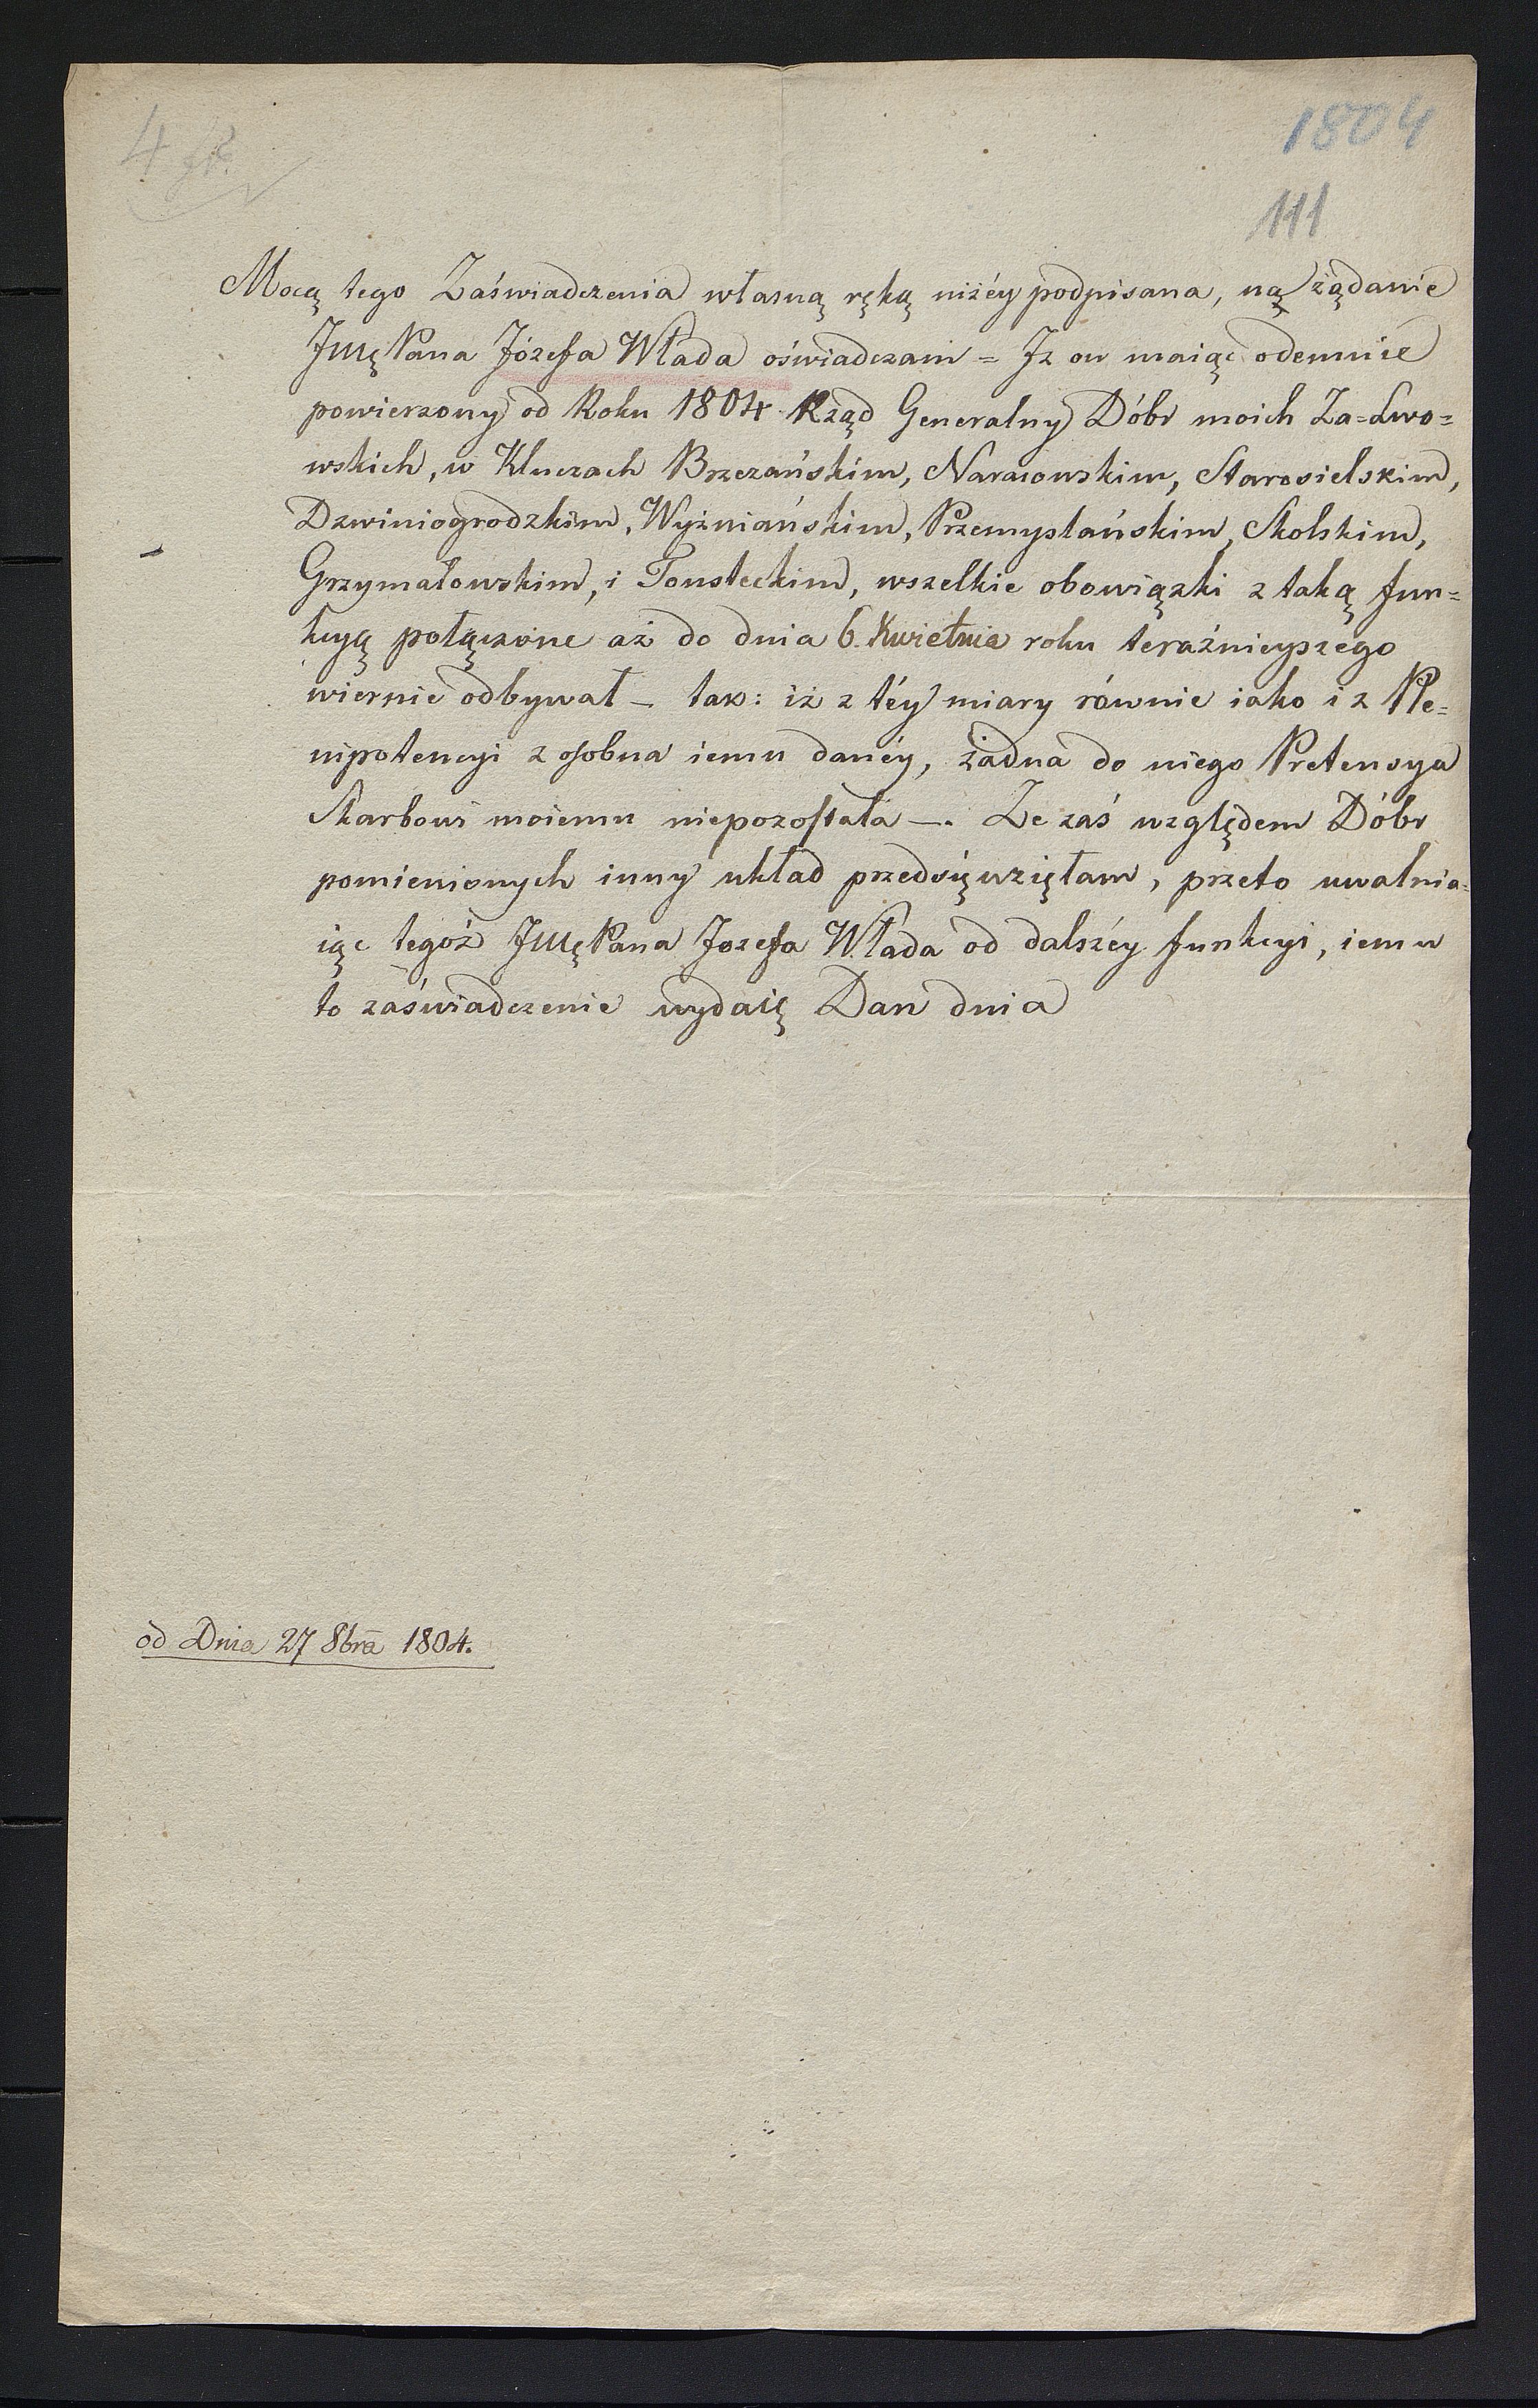 1804
111
Mocą tego Zaświadczenia własną ręką niżéy podpisana, na żądanie
JMę Pana Józefa Włada oświadczam = Jz on maiąc odemnie
powierzony od Roku 1804 Rząd Generalny Dóbr moich Za=Lwo=
wskich, w Kluczach Brzezańskim, Naraiowskim, Starosielskim,
Dzwiniogrodzkim, Wyżniańskim, Przemyslańskim, Skolskim,
Grzymałowskim, i Tousteckim, wszelkie obowiązki z taką fun=
kcyą połączone aż do dnia 6. Kwietnia roku teraźnieyszego
wiernie odbywał – tak: iż z téy miary równie iako i z Ple=
nipotencyi z osobna iemu danéy, żadna do niego Pretensya
Skarbowi moiemu niepozostała –. Ze zaś względem Dóbr
pomienionych inny układ przedsięwzięłam, przeto uwalnia=
iąc tegoż JMę Pana Jozefa Włada od dalszéy funkcyi, iemu
to zaświadczenie wydaię Dan dnia
od Dnia 27 8bra 1804.